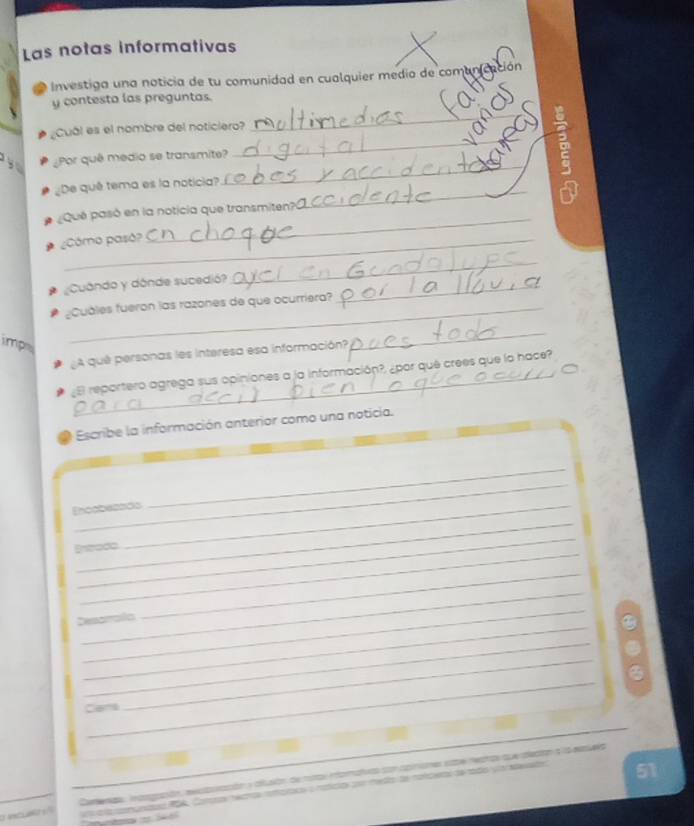 Las notas informativas
Investiga una noticia de tu comunidad en cualquier medio de comunicación
y contesta las preguntas.
Faltan
varias
tareas
Lenguajes
¿Cuál es el nombre del noticiero? multimedias
¿Por qué medio se transmite? digital
¿De qué tema es la noticia? robos y accidentes
¿Qué pasó en la noticia que transmiten? accidente
¿Cómo pasó? en choque
¿Cuándo y dónde sucedió? ayer en Guadalupe
¿Cuáles fueron las razones de que ocurriera? por la lluvia
¿A qué personas les interesa esa información? pues todo
¿El reportero agrega sus opiniones a la información?, ¿por qué crees que lo hace?
para decir bien lo que ocurrio
Escribe la información anterior como una noticia.
Encabezado
Entrada
Desarrollo
Cierre
51